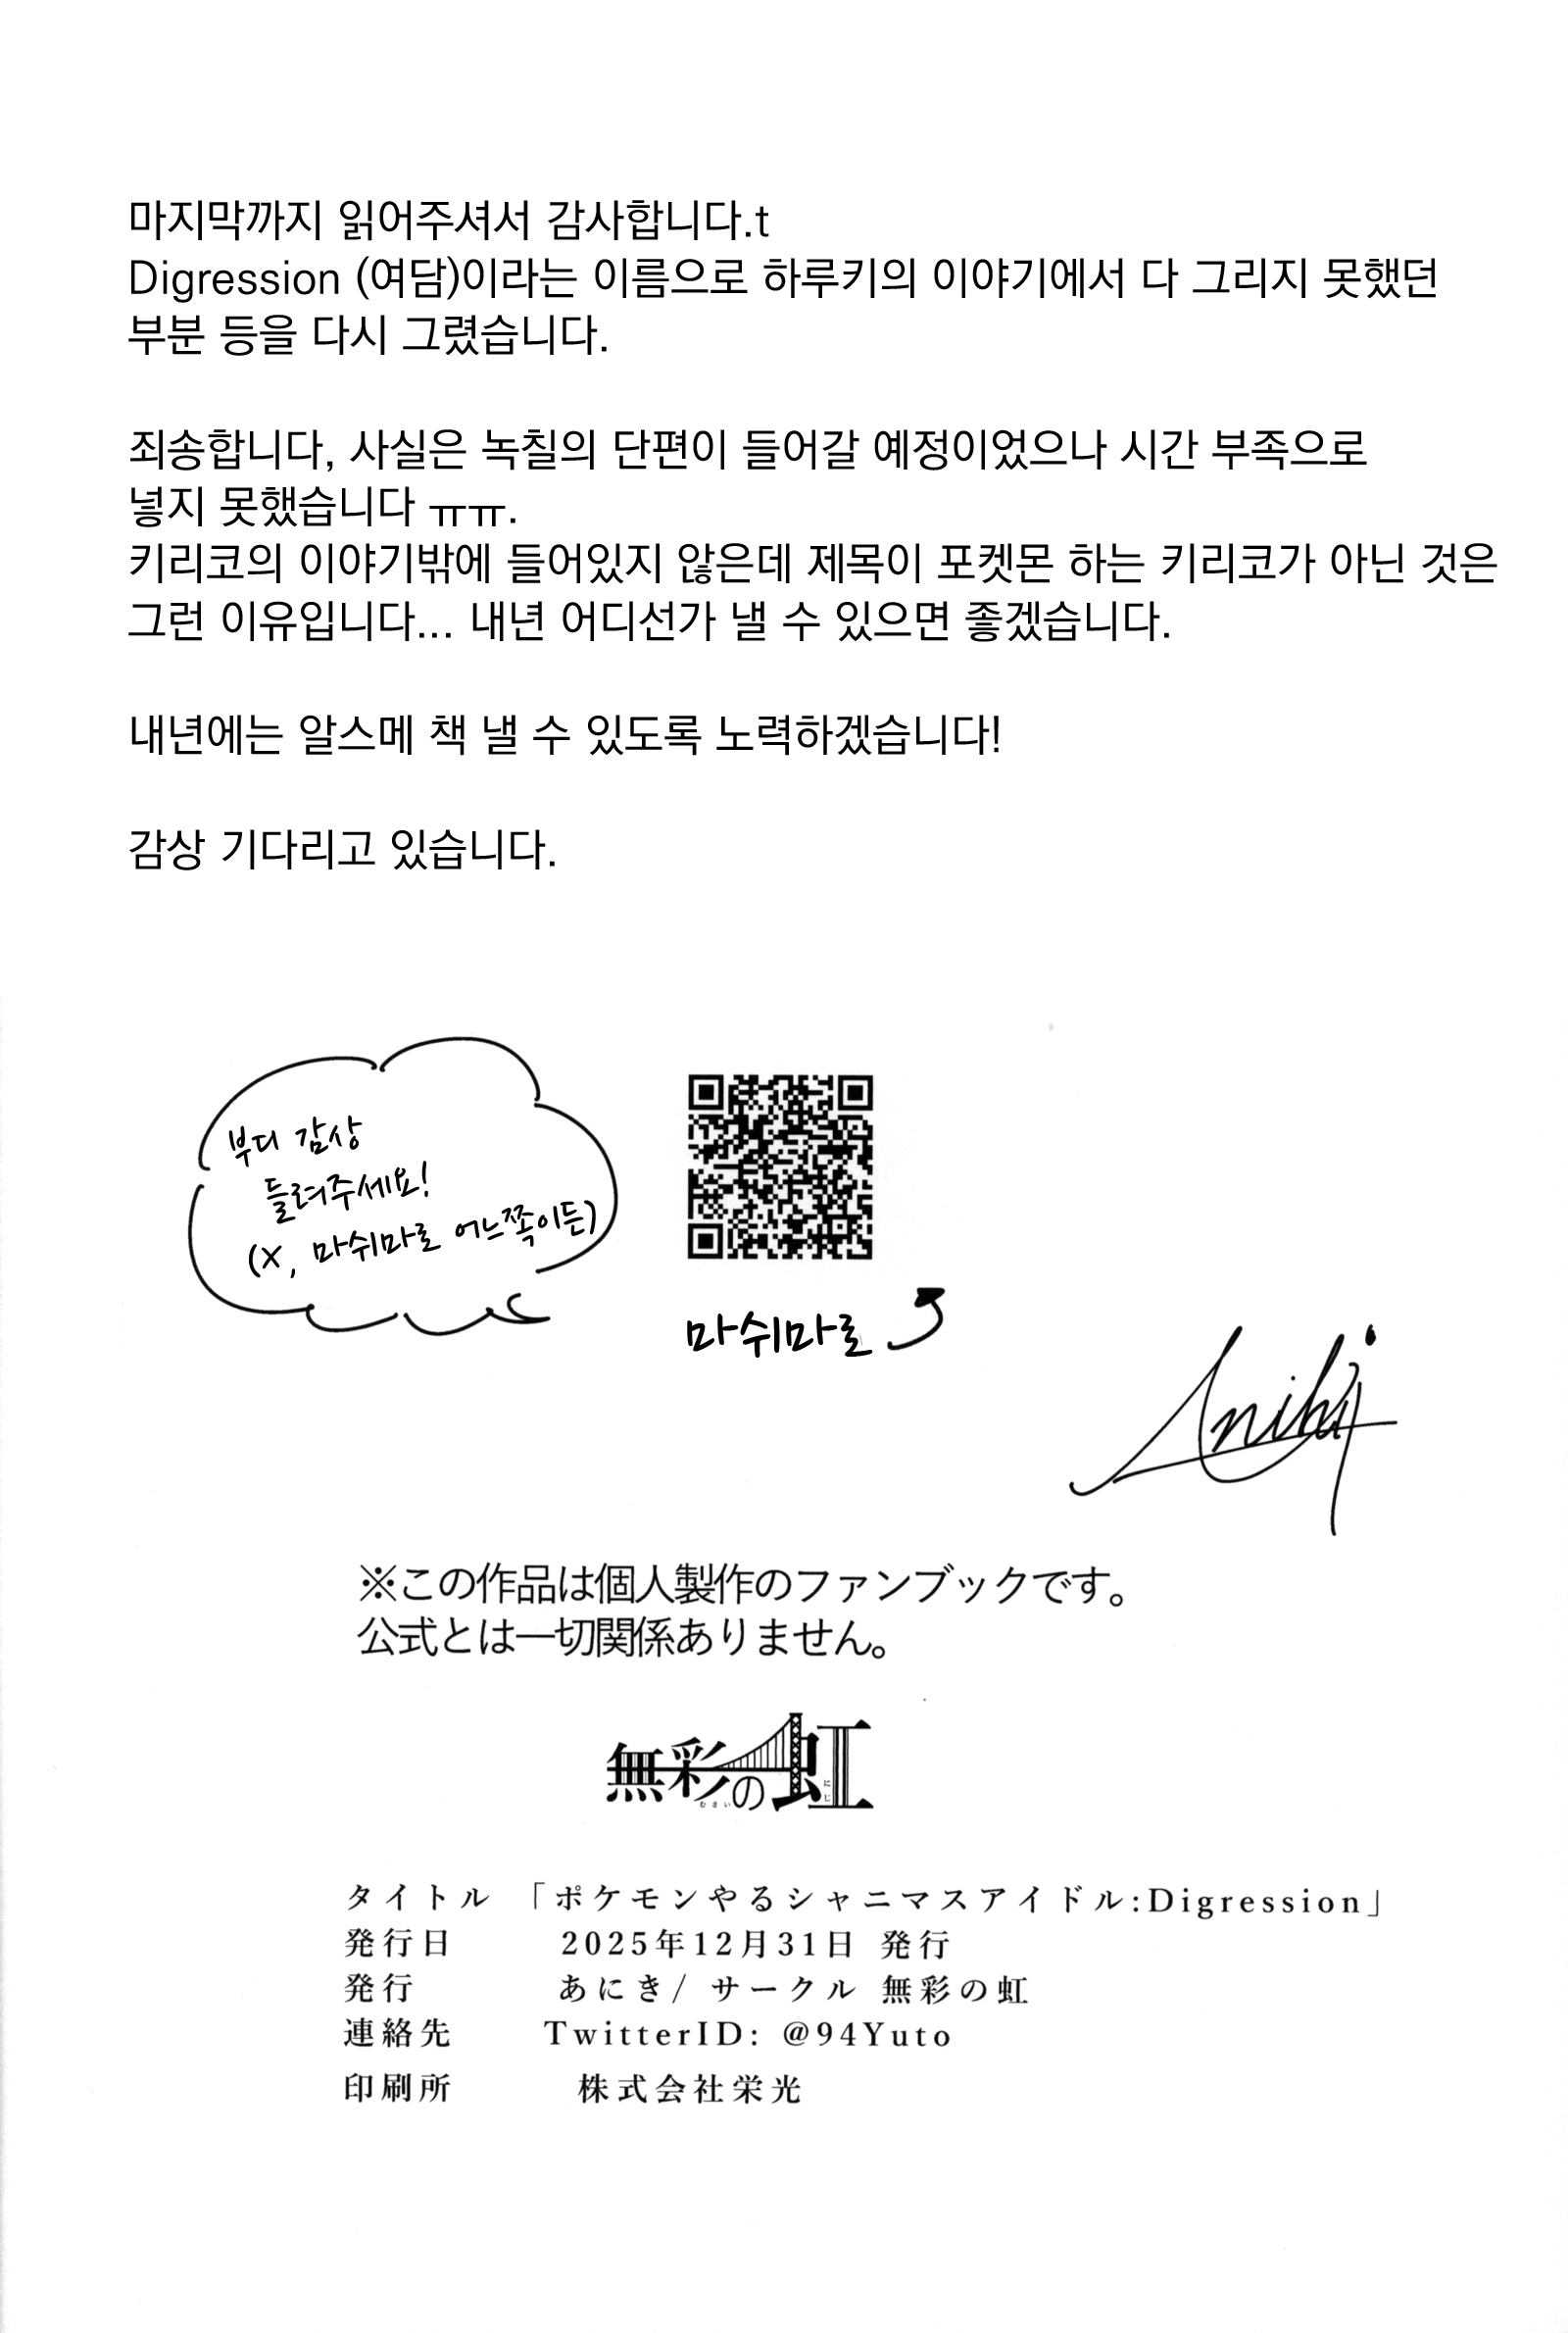 마지막까지 읽어주셔서 감사합니다.t
Digression (여담)이라는 이름으로 하루키의 이야기에서 다 그리지 못했던
부분 등을 다시 그렸습니다.
죄송합니다, 사실은 녹칠의 단편이 들어갈 예정이었으나 시간 부족으로
넣지 못했습니다 ㅠㅠ.
키리코의 이야기밖에 들어있지 않은데 제목이 포켓몬 하는 키리코가 아닌 것은
그런 이유입니다... 내년 어디선가 낼 수 있으면 좋겠습니다.
내년에는 알스메 책 낼 수 있도록 노력하겠습니다!
감상 기다리고 있습니다.
부디 감상
들려주세요!
(X, 마쉬마로 어느쪽이든)
마쉬마로
Aniki
※この作品は個人製作のファンブックです。
公式とは一切関係ありません。
無彩の虹
むさい
にじ
タイトル 「ポケモンやるシャニマスアイドル:Digression」
発行日 2025年12月31日 発行
発行 あにき/ サークル 無彩の虹
連絡先 TwitterID: @94Yuto
印刷所 株式会社栄光